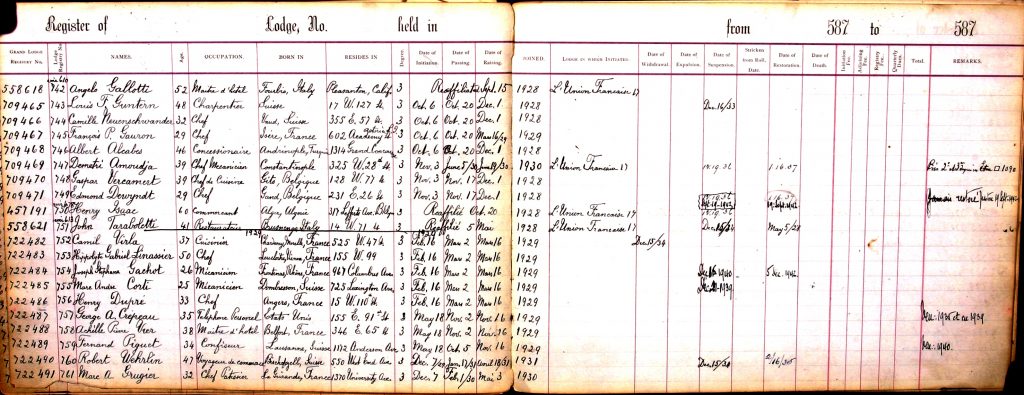 Register of Lodge, No. held in from 587 to 587
GRAND LODGE REGISTRY NO. Lodge Registry No. NAMES. Age. OCCUPATION BORN IN RESIDES IN Degree. Date of Initiation. Date of Passing. Date of Raising. JOINED. LODGE IN WHICH INITIATED. Date of Withdrawal. Date of Expulsion. Date of Suspension. Stricken from Roll, Date. Date of Restoration. Date of Death. Initiation Fee. Adjoining Fee. Registry Fee. Quarterly Dues. Total. REMARKS.
558618 742 Angelo Gallotti 52 Maitre d'hotel Italy Pleasanton, Calif 3 Reaffiliated Sept. 15 1928 L'Union Francaise 17
709465 743 Louis F. Guntern 48 Charpentier Suisse 17 W. 127 St. 3 Oct. 6 Oct. 20 Dec. 1 1928 Dec. 16/33
709466 744 Camill Neuenschwander 32 Chef Vaud, Suisse 355 E. 57 St. 3 Oct. 6 Oct. 20 Dec. 1 1928
709467 745 François P. Gauron 29 Chef Isère, France 602 Academy St. 3 Oct. 6 Oct. 20 Mar 16/29 1929
709468 746 Albert Alcabes 46 Concessionaire Andrinople, 1314 Grand Concourse 3 Oct. 6 Oct. 20 Dec. 1 1928
709469 747 Demetri Amoudja 39 Chef Mécanicien Constantinople 325 W. 28 St. 3 Nov. 3 June 5/30 June 19/30 1930 L'Union Francaise 17
709470 748 Gaspar Vercamert 39 Chef de Cuisine Gits, Belgique 128 W. 77 St. 3 Nov. 3 Nov. 17 Dec. 1 1928
709471 749 Edmond Dewyndt 29 Chef Gand, Belgique 231 E. 26 St. 3 Nov. 3 Nov. 17 Dec. 1 1928
457191 750 Henry Isaac 60 Commercant Alger, Algerie 3 Reaffilié Oct. 20 1928 L'Union Francaise 17
558621 751 John Tarabolotti 41 Restaurateur Italy 14 W. 71 St. 3 Reaffilié 5 Mai 1928 L'Union Francaise 17 May 5/28
1929 1929
722482 752 Camil Virla 37 Cuisinier France 525 W. 47 St. 3 Feb. 16 Mar 2 Mar 16 1929 Dec 15/34
722483 753 Hippolyte Gabriel Linassier 50 Chef France 155 W. 99 3 Feb. 16 Mar 2 Mar 16 1929
722484 754 Joseph Stephane Gachot 26 Mécanicien Rhône, France 967 Columbus Ave. 3 Feb. 16 Mar 2 Mar 16 1929 Dec 1940. 5 Dec. 1942
722485 755 Marc Andre Corti 25 Mécanicien Dombresson, Suisse 725 Lexington Ave. 3 Feb. 16 Mar 2 Mar 16 1929 1939
722486 756 Henry Dupré 33 Chef Angers, France 15 W. 110 St. 3 Feb. 16 Mar 2 Mar 16 1929
722487 757 George A. Crepeau 35 Telephone Personel Etats Unis 155 E. 91 St 3 May 18 Nov. 2 Nov. 16 1929
722488 758 Achille Pierre Vier 38 Maitre d'hotel Belfort, France 346 E. 65 St. 3 May 18 Nov. 2 Nov. 16 1929
722489 759 Fernand Piguet 34 Confiseur Lausanne, Suisse 1172 Anderson Ave. 3 May 18 Oct. 5 Nov. 16 1929 Dec. 1940.
722490 760 Robert Wehrlin 47 Voyageur de commerce Suisse 550 West End Ave. 3 Jan. 17/31 April 18/31 1931 Dec. 15/34
722491 761 Marc A. Grugier 32 Chef Patissier France 1370 University Ave. 3 Dec. 7 Feb. 1/30 Mai 3 1930